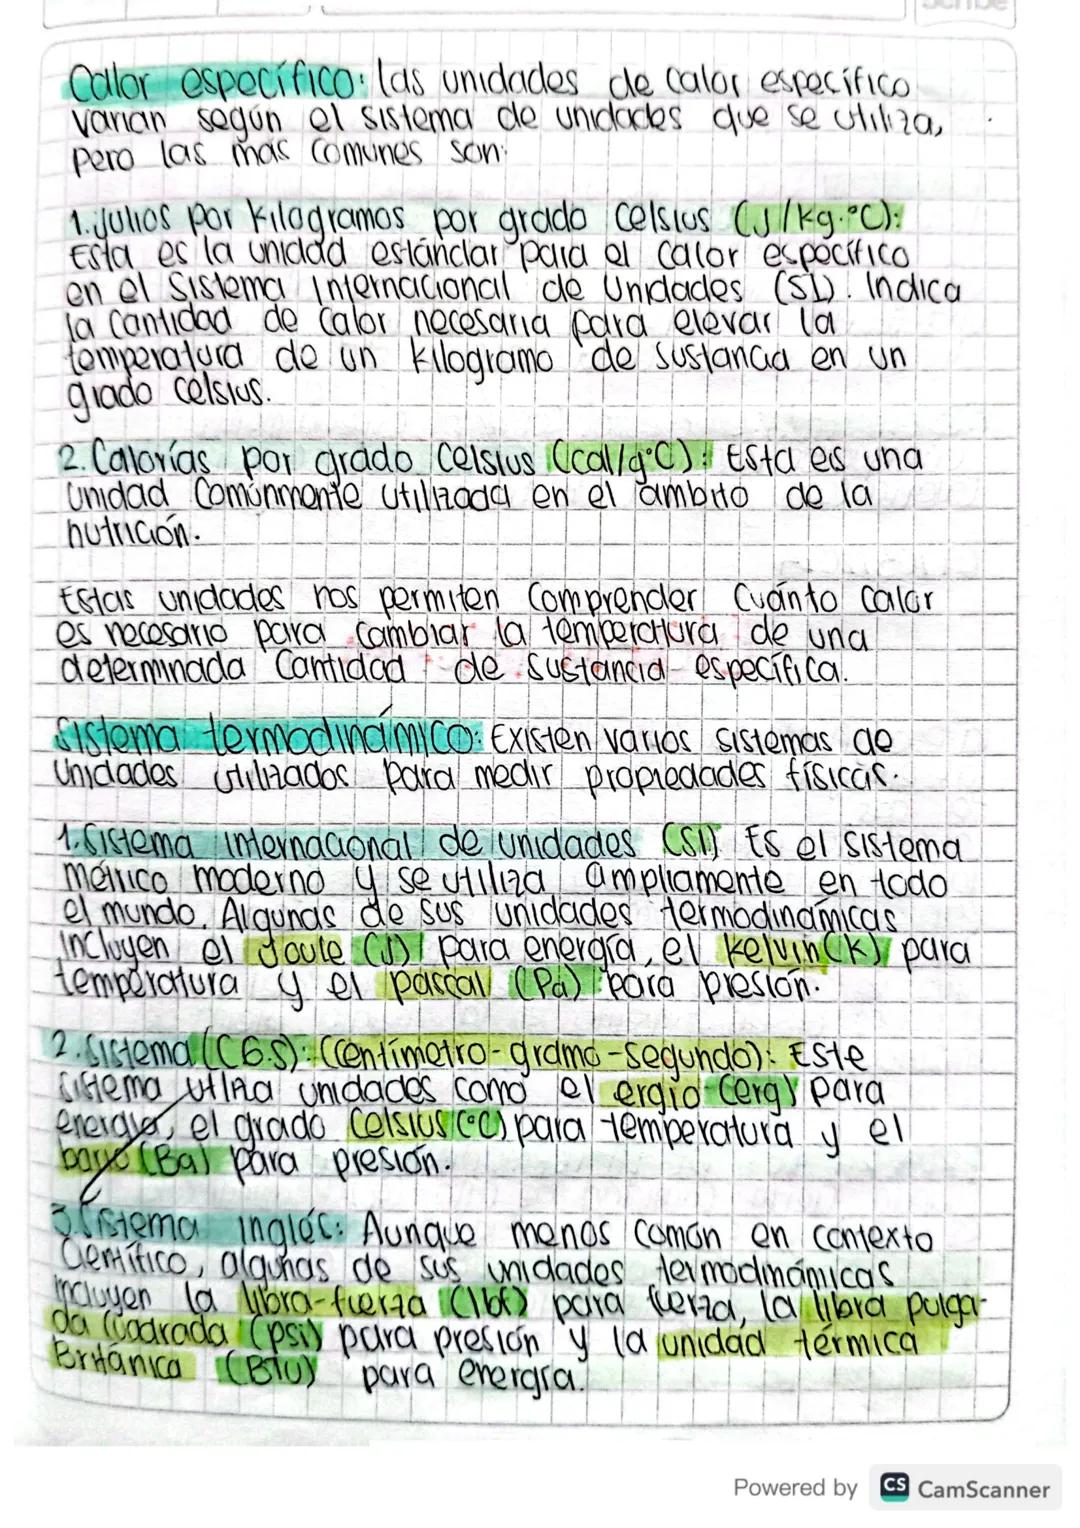 Scribe
Calor específico: las unidades de calor específico
varían según el sistema de unidades que se utiliza,
pero las más comunes son:
1. Julios por kilogramos por grado Celsius (J/kg·°C):
Esta es la unidad estándar para el calor específico
en el Sistema Internacional de Unidades (SI). Indica
la cantidad de calor necesaria para elevar la
temperatura de un kilogramo de sustancia en un
grado celsius.
2. Calorías por grado Celsius (cal/g°C): Esta es una
unidad Comúnmente utilizada en el ámbito de la
nutrición.
Estas unidades nos permiten Comprender Cuánto calor
es necesario para cambiar la temperatura de una
determinada Cantidad de sustancia específica.
Sistema termodinámico: Existen varios sistemas de
Unidades utilizados para medir propiedades físicas.
1. Sistema internacional de unidades (SI) Es el sistema
métrico moderno y se utiliza ampliamente en todo
el mundo. Algunas de sus unidades termodinámicas
incluyen el Joule (J) para energía, el Kelvin (K) para
temperatura y el pascal (Pa) para presión.
2. Sistema (C.G.S): (Centímetro-gramo-segundo): Este
sistema utiliza unidades como el ergio (erg) para
energía, el grado Celsius (°C) para temperatura y el
baryo (Ba) para presión.
3. Sistema inglés: Aunque menos común en contexto
Científico, algunas de sus unidades termodinámicas
incluyen la libra-fuerza (lbf) para fuerza, la libra pulga-
da cuadrada (psi) para presión y la unidad térmica
Británica (BTU) para energía.
Powered by CS CamScanner